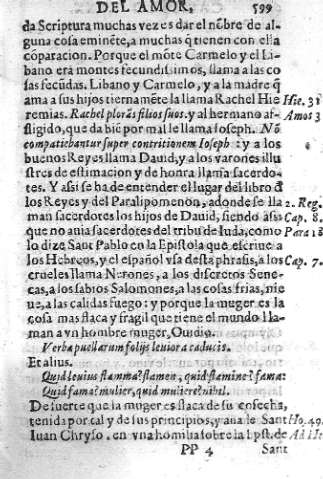 DEL AMOR, 599
da Scriptura muchas vezes dar el nõbre de al-
guna cosa eminẽte, a muchas q̃ tienen con ella
cõparacion. Porque el mõte Carmelo y el Li-
bano erã montes fecundissimos, llama a las co
sas fecũdas, Libano y Carmelo, y a la madre q̃
ama a sus hijos tiernamẽte la llama Rachel Hie Hie. 31
remias. Rachel plorãs filios suos. y al hermano af- Amos 3
fligido, que da biẽ por mal le llama Ioseph. Nõ
compatiebantur super contritionem Ioseph: y a los
buenos Reyes llama Dauid, y a los varones illu
stres de estimacion y de honra llama sacerdo-
tes. Y assi se ha de entender el lugar del libro d̃
los Reyes y del Paralipomenon, adonde se lla 2. Reg.
man sacerdotes los hijos de Dauid, siendo assi Cap. 8.
que no auia sacerdotes del tribu de Iuda, como Para 18
lo dize Sant Pablo en la Epistola que escriue a
los Hebreos, y el español vsa desta phrasis, a los Cap. 7.
crueles llama Nerones, a los discretos Sene-
cas, a los sabios Salomones, a las cosas frias, nie
ue, a las calidas fuego: y porque la muger es la
cosa mas flaca y fragil que tiene el mundo lla-
man a vn hombre muger, Ouidio.
Verba puellarum folijs leuiora caducis.
Et alius.
Quid leuius flamma? flamen, quid flamine? fama:
Quid fama? mulier, quid muliere? nihil.
De suerte que la muger es flaca de su cosecha,
tenida por tal y de sus principios, y ansi le Sant Ho. 49.
Iuan Chryso. en vna homilia sobre la 1. pst. de Ad He
PP 4 Sant